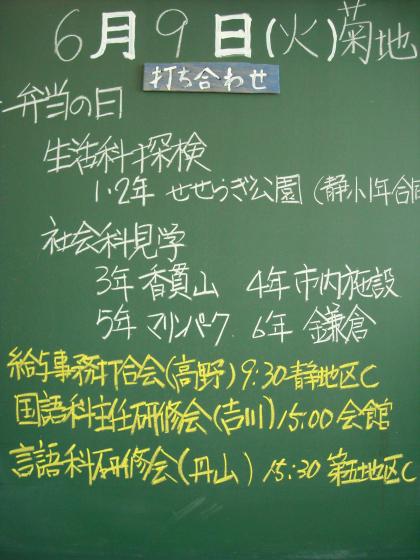 6月9日(火)菊地
打ち合わせ
弁当の日
生活科探検
1・2年 せせらぎ公園 (静小1年合同
社会科見学
3年 香貫山 4年 市内施設
5年 マリンパーク 6年 鎌倉
給与事務打合会(高野) 9:30 静地区C
国語科主任研修会(吉川) 15:00 会館
言語科研修会(丹山) 15:30 第五地区C